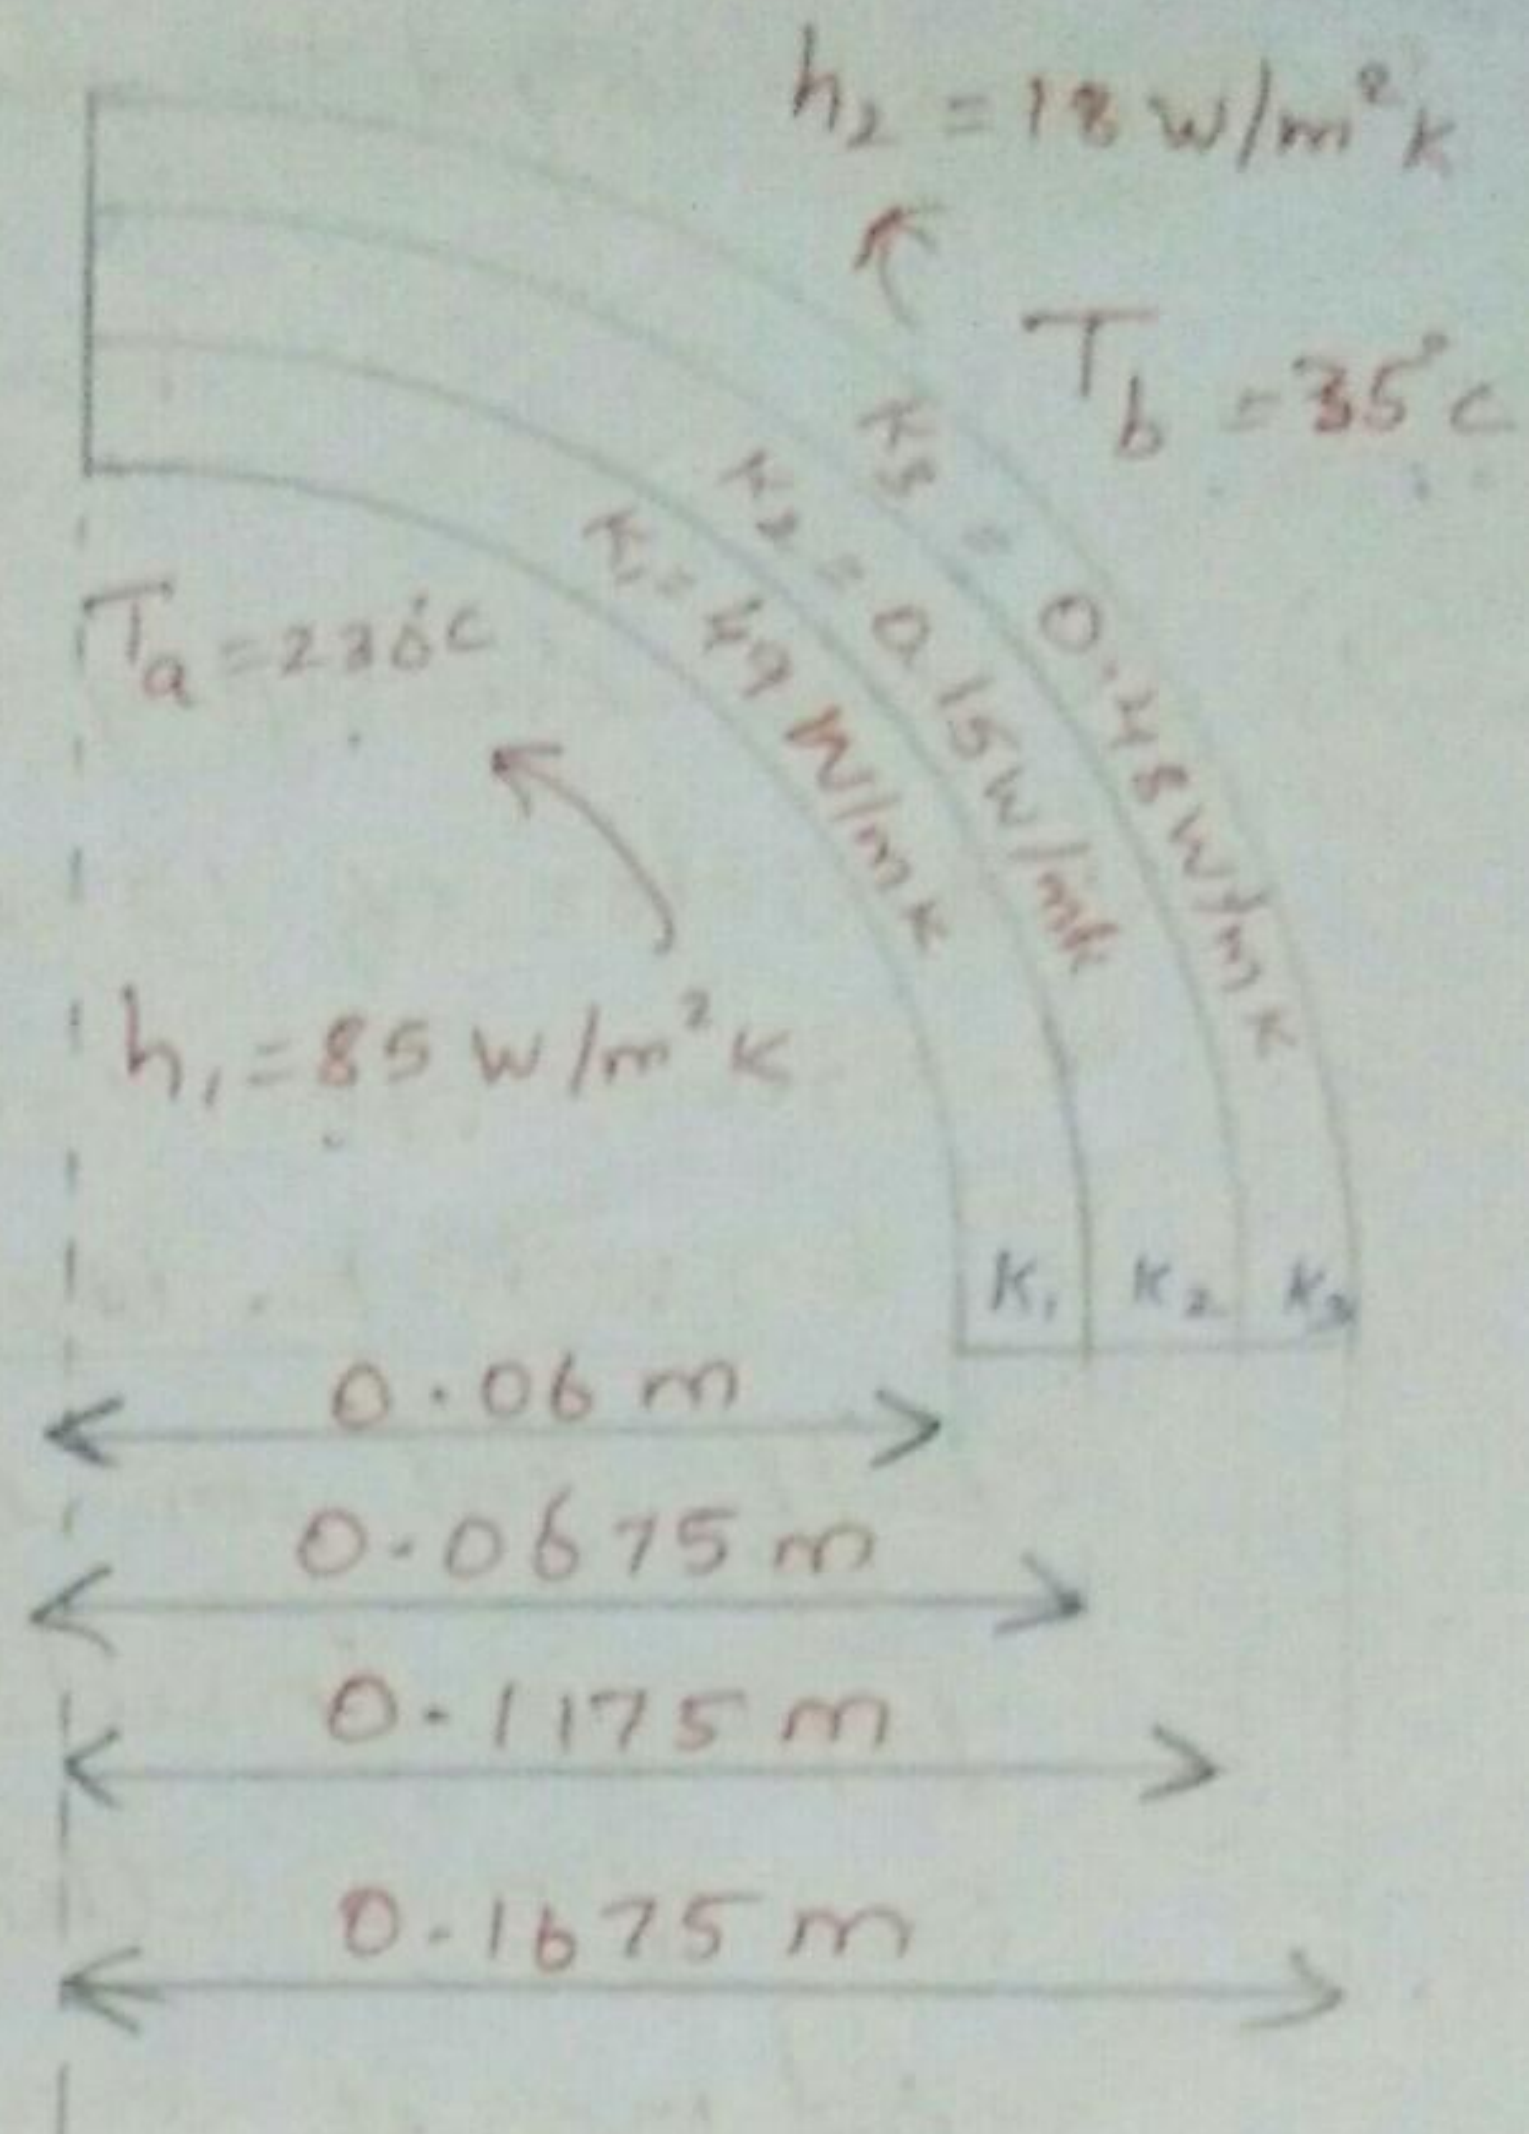 h₂ = 18 W/m²K
T_b = 35°C
K₃ = 0.48 W/mK
K₂ = 0.15 W/mK
K₁ = 49 W/mK
h₁ = 85 W/m²K
K₁ K₂ K₃
0.06 m
0.0675 m
0.1175 m
0.1675 m